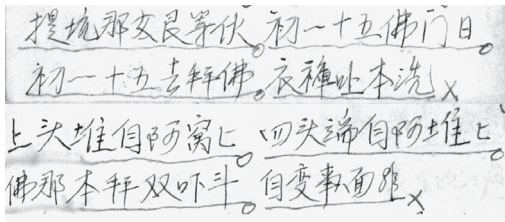 提坑那女良等伙。初一十五佛门日。
初一十五去拜佛。衣裤吐本洗×
上头堆自阿窝匕。四头端自阿堆匕。
佛那本拜双吓斗。自变事面×